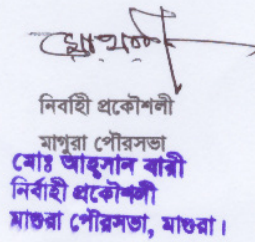 নির্বাহী প্রকৌশলী
মাগুরা পৌরসভা
মোঃ আহসান বারী
নির্বাহী প্রকৌশলী
মাগুরা পৌরসভা, মাগুরা।